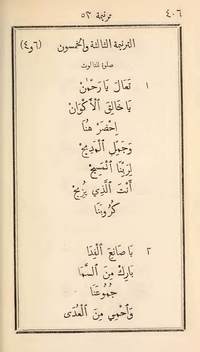 ٤٠٦ ترنيمة ٥٣
الترنيمة الثالثة والخمسون (٦و٤)
صلوة للثالوث
١ تَعَالَ يَا رَحْمٰنْ
يَا خَالِقَ ٱلْأَكْوَانْ
اِحْضَرْ هُنَا
وَجَمِّلِ ٱلْمَدِيحْ
لِرَبِّنَا ٱلْمَسِيحْ
أَنْتَ ٱلَّذِي يُزِيحْ
كُرُوبَنَا
٢ يَا صَانِعَ ٱلْفِدَا
بَارِكْ مِنَ ٱلسَّمَا
جُمُوعَنَا
وَٱحْمِي مِنَ ٱلْعِدَى